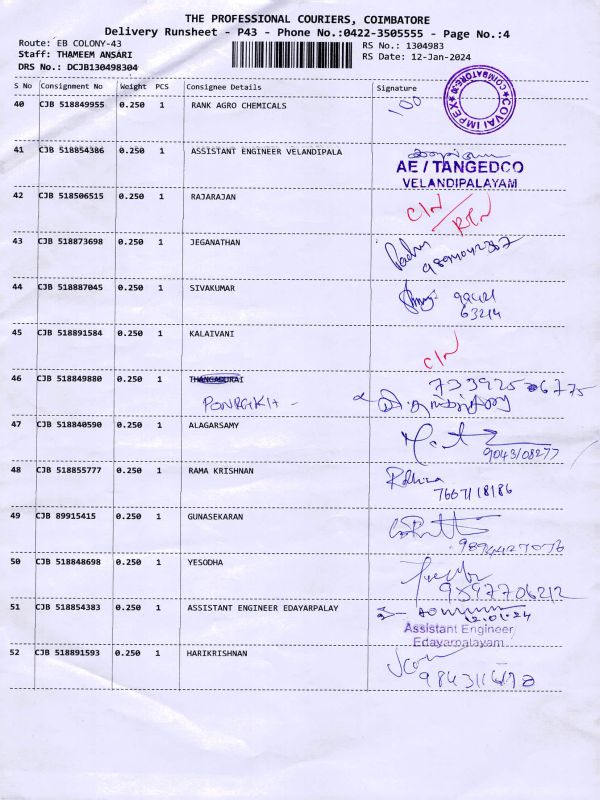 THE PROFESSIONAL COURIERS, COIMBATORE
Delivery Runsheet - P43 - Phone No.:0422-3505555 - Page No.:4
Route: EB COLONY-43
RS No.: 1304983
Staff: THAMEEM ANSARI
RS Date: 12-Jan-2024
DRS No.: DCJB130498304
S No Consignment No Weight PCS Consignee Details Signature
40 CJB 518849955 0.250 1 RANK AGRO CHEMICALS
COVAI IMPEX
41 CJB 518854386 0.250 1 ASSISTANT ENGINEER VELANDIPALA
AE / TANGEDCO
VELANDIPALAYAM
42 CJB 518506515 0.250 1 RAJARAJAN
C/N
RTN
43 CJB 518873698 0.250 1 JEGANATHAN
44 CJB 518887045 0.250 1 SIVAKUMAR
99421
63214
45 CJB 518891584 0.250 1 KALAIVANI
C/N
46 CJB 518849880 0.250 1 THANGADURAI
47 CJB 518840590 0.250 1 ALAGARSAMY
9043108277
48 CJB 518855777 0.250 1 RAMA KRISHNAN
7667118186
49 CJB 89915415 0.250 1 GUNASEKARAN
50 CJB 518848698 0.250 1 YESODHA
9597706212
51 CJB 518854383 0.250 1 ASSISTANT ENGINEER EDAYARPALAY
12.01.24
Assistant Engineer
Edayarpalayam
52 CJB 518891593 0.250 1 HARIKRISHNAN